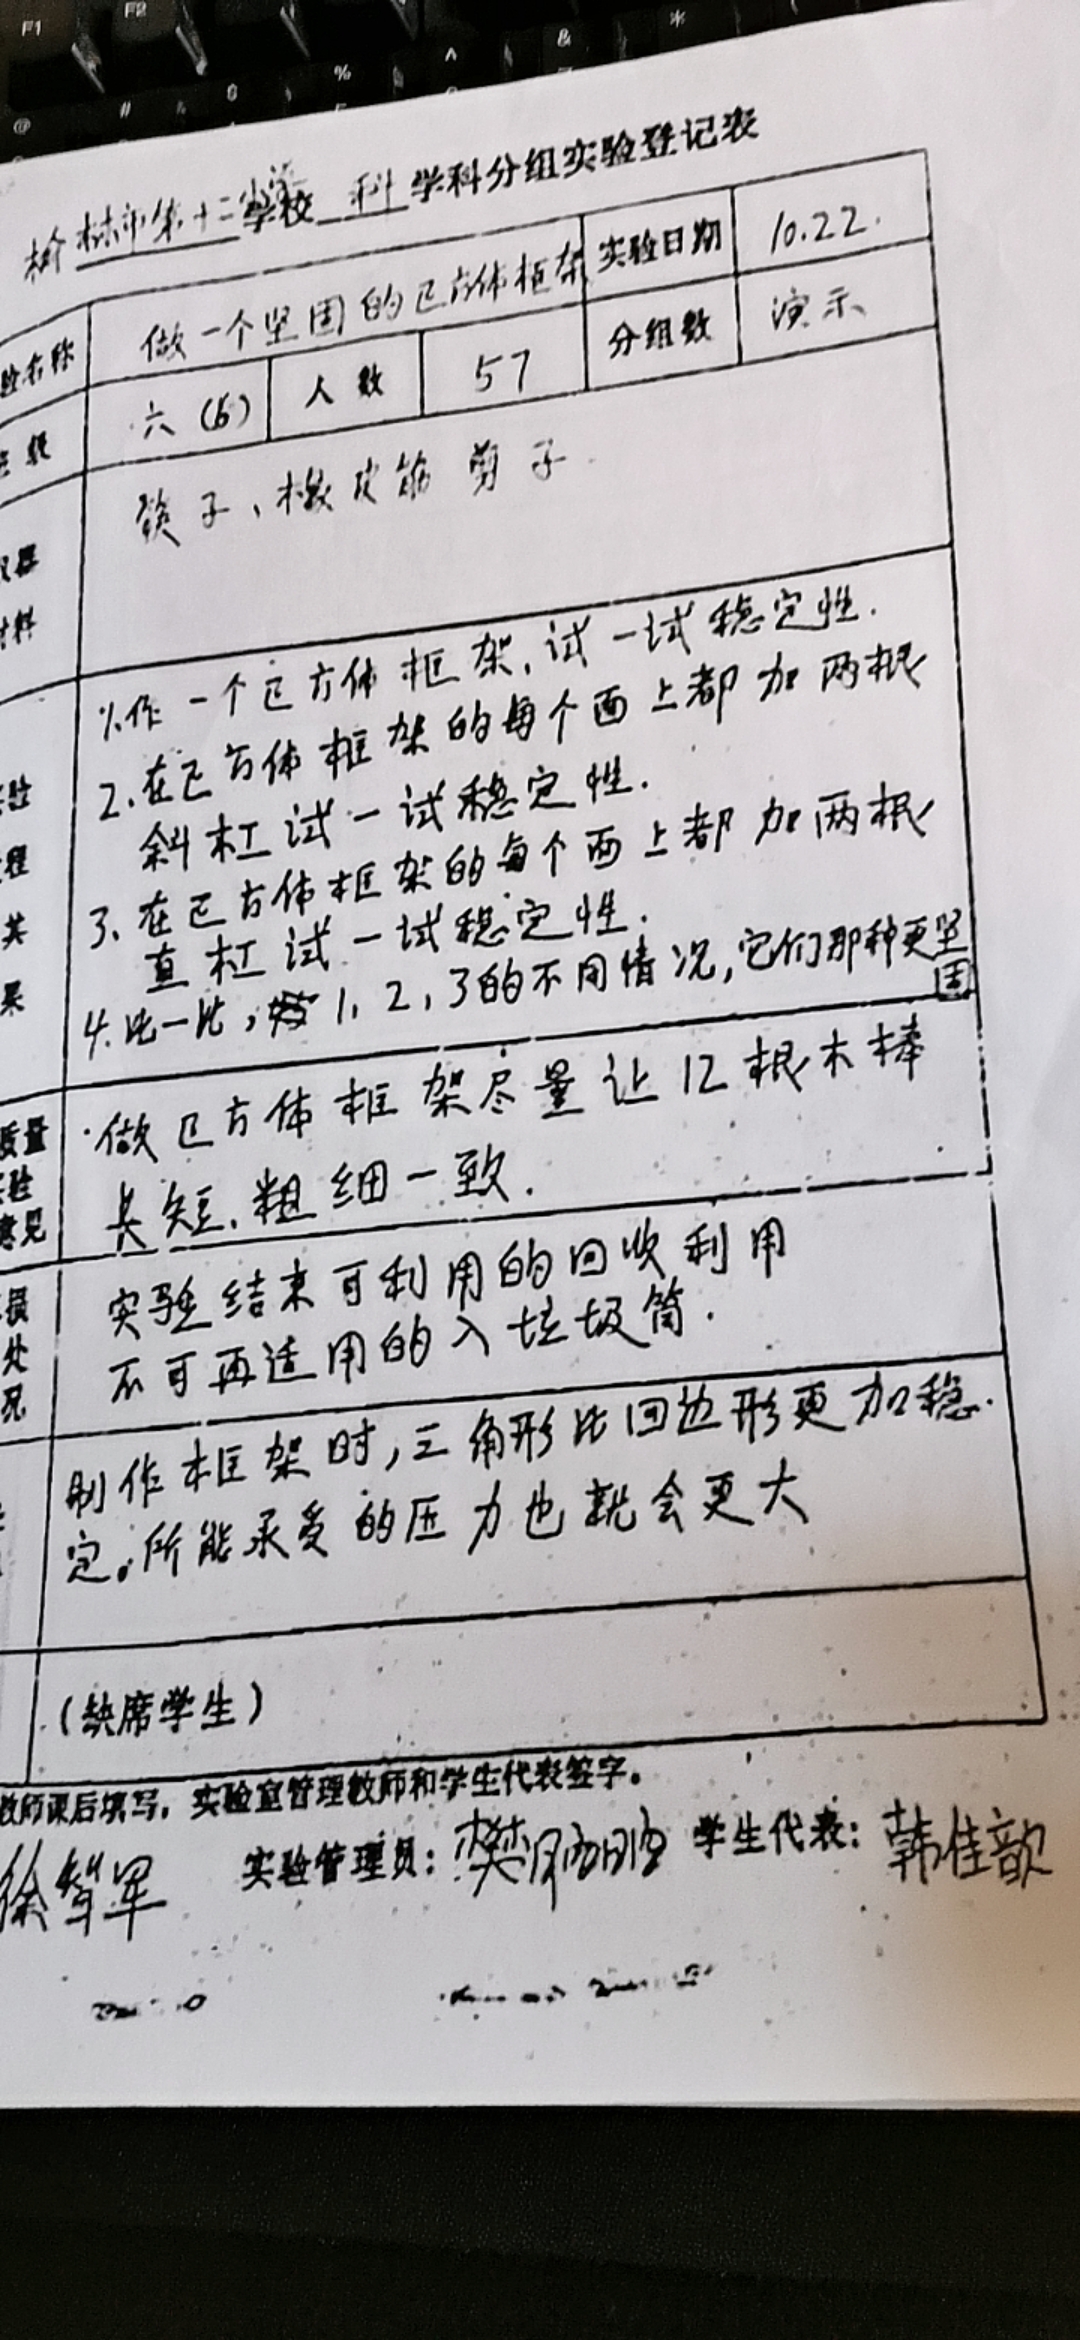 F1 F2
@ # $ % ^ & *
榆林市第十二小学 学校 科 学科分组实验登记表
验名称 做一个坚固的正方体框架 实验日期 10.22.
级 六(6) 人数 57 分组数 演示
筷子、橡皮筋 剪子.
器
材料
1.作一个正方体框架,试一试稳定性.
2.在正方体框架的每个面上都加两根
验 斜杠试一试稳定性.
程 3.在正方体框架的每个面上都加两根
其 直杠试一试稳定性.
果 4.比一比, 1,2,3的不同情况,它们那种更坚
固
质量 做正方体框架尽量让12根木棒
验 长短.粗细一致.
意见
损 实验结束可利用的回收利用
处 不可再适用的入垃圾筒.
况
制作框架时,三角形比四边形更加稳.
定。所能承受的压力也就会更大
(缺席学生)
教师课后填写,实验室管理教师和学生代表签字。
徐 军 实验管理员: 樊 学生代表: 韩佳歆